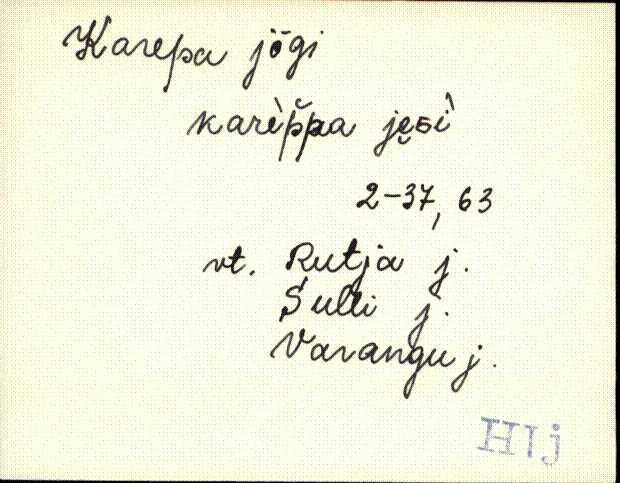 Karepa jõgi
karèp̆pa je̮sì
2-37, 63
vt. Rutja j.
Sulli j.
Varangu j.
HlJj